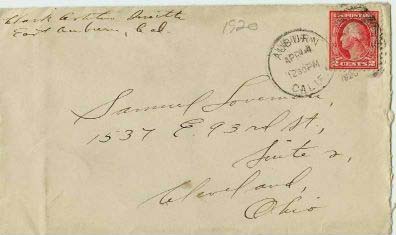 Clark Ashton Smith
East Auburn, Cal.
1920
AUBURN
APR
12 30 PM
CALIF.
U.S. POSTAGE
2 CENTS 2
1920
Samuel Loveman,
1537 E. 93rd St,
Suite 2,
Cleveland,
Ohio